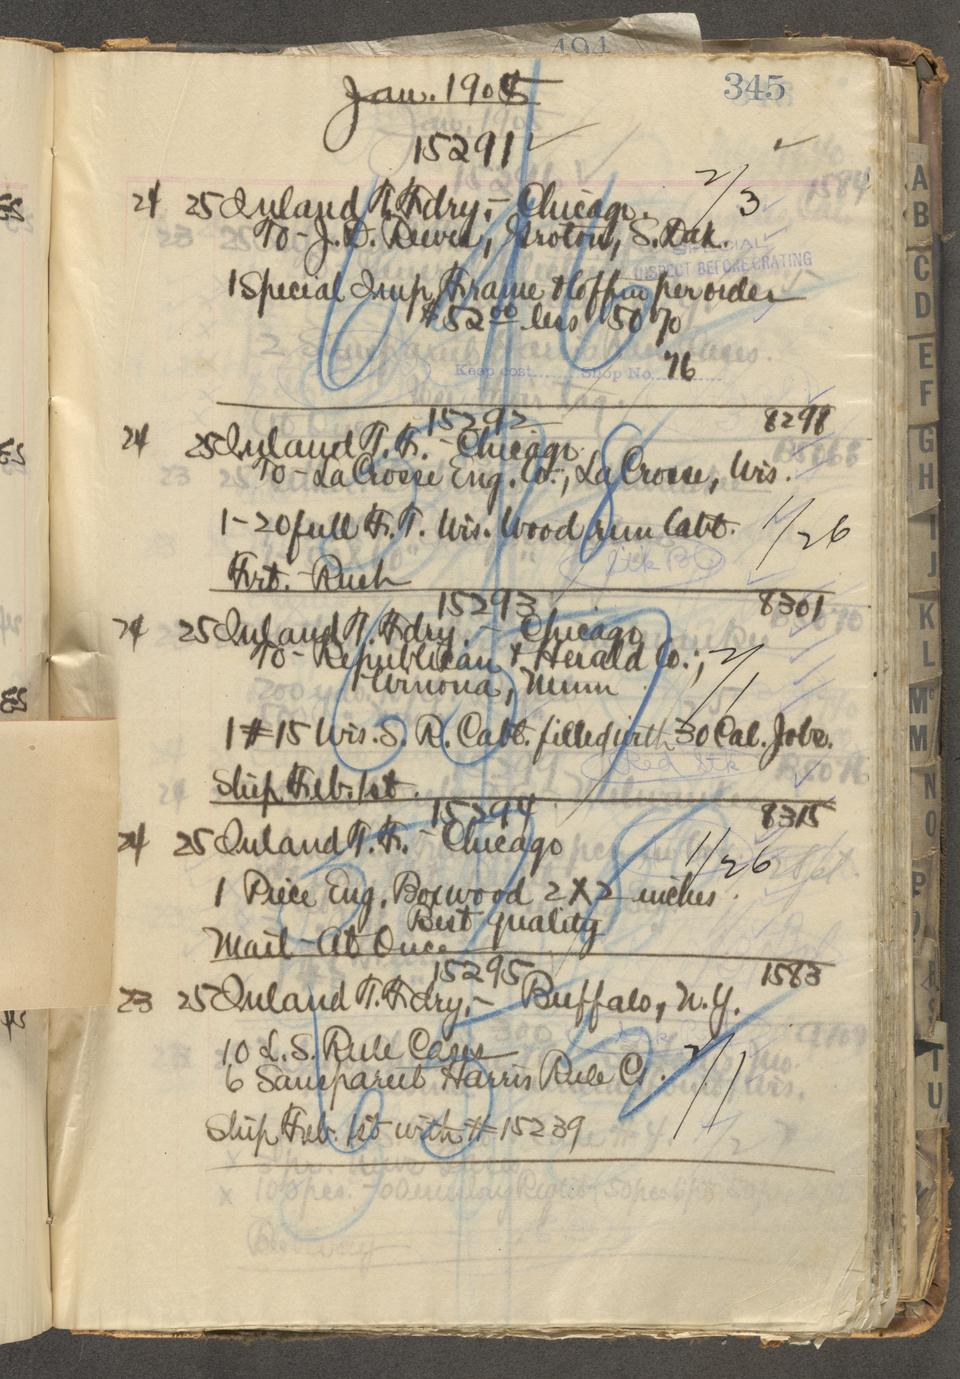 345
Jan. 1905
15291
24 25 Inland T. Fdry, - Chicago. 2/3
To - J. D. Reeves, Groton, S. Dak.
SPECIAL
INSPECT BEFORE CRATING
1 Special Imp. Frame & Coffin per order
$52 00 less 50 %
Keep cost........Shop No. 76
15292 8298
24 25 Inland T. F. - Chicago.
To - LaCrosse Eng. Co., LaCrosse, Wis.
1 - 20 full F. T. Wis. Wood run Cabt. 1/26
Stk
Frt. - Rush
15293 8301
24 25 Inland T. Fdry. - Chicago
To - Republican & Herald Co.; 2/1
Winona, Minn
1 #15 Wis. S. R. Cabt. filled with 30 Cal. Jobs.
Red Stk
Ship Feb. 1st.
15294 8315
24 25 Inland T. F. - Chicago 1/26
1 Piece Eng. Boxwood 2 X 2 inches
Best quality
Mail - At Once
15295 1583
23 25 Inland T. Fdry, - Buffalo, N.Y.
10 L. S. Rule Cases 2/1
6 Sanspareil Harris Rule Cs.
Ship Feb. 1st with #15239
A
B
C
D
E
F
G
H
I
J
K
L
Mc
M
N
O
P
T
U